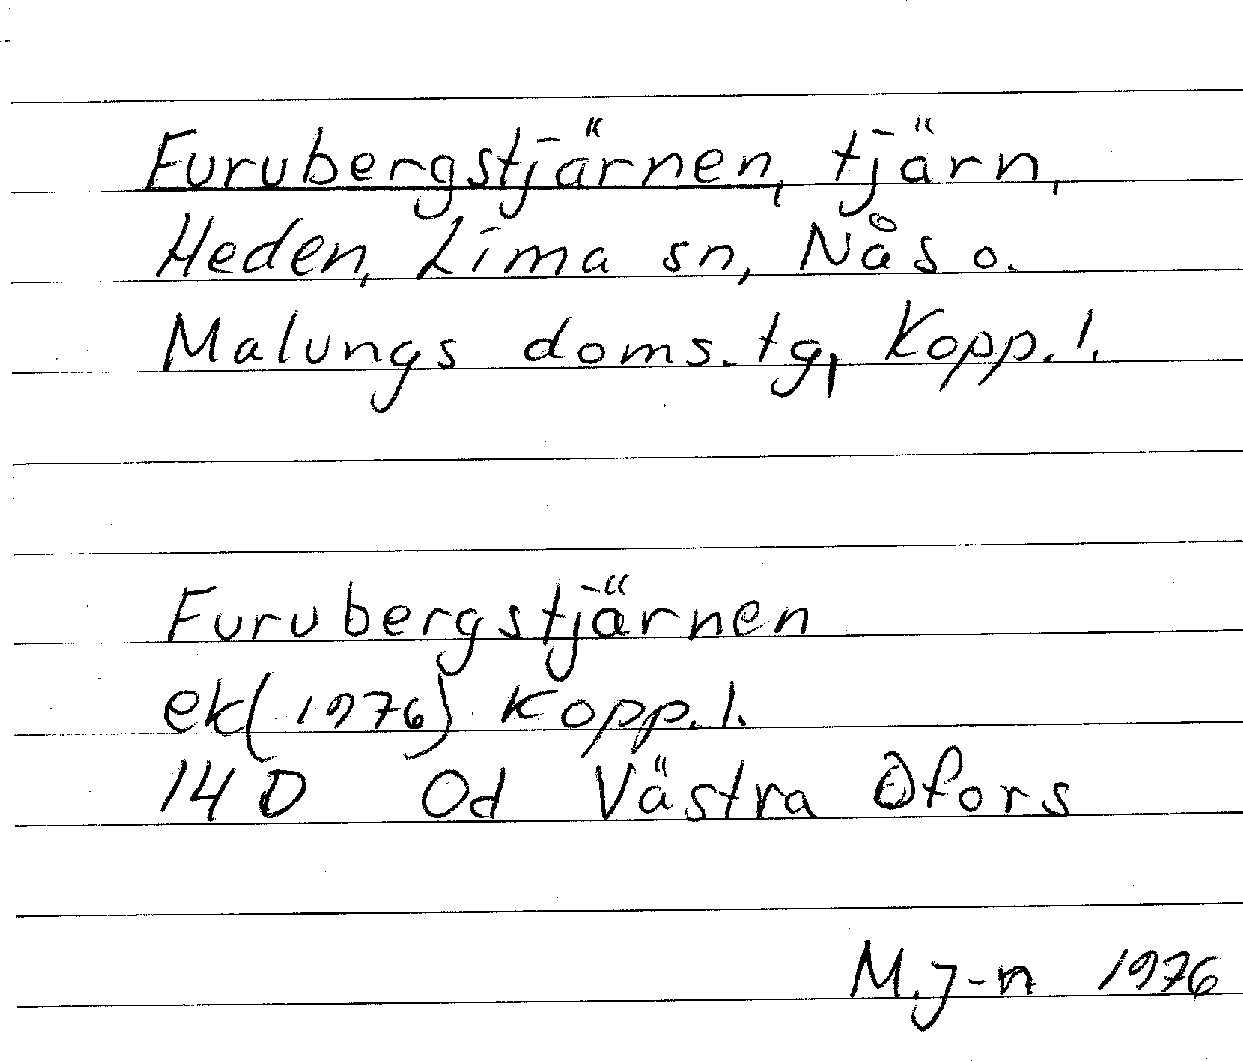 Furubergstjärnen, tjärn,
Heden, Lima sn, Nås o.
Malungs doms. tg, Kopp. l.
Furubergstjärnen
ek (1976) Kopp. l.
14 D Od Västra Ofors
M. J-n 1976